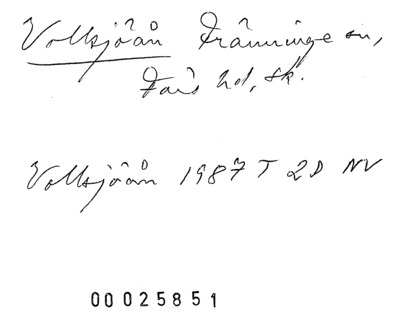 Vollsjöån Tränninge sn,
Färs hd, Sk.
Vollsjöån 1987 T 2D NV
00025851